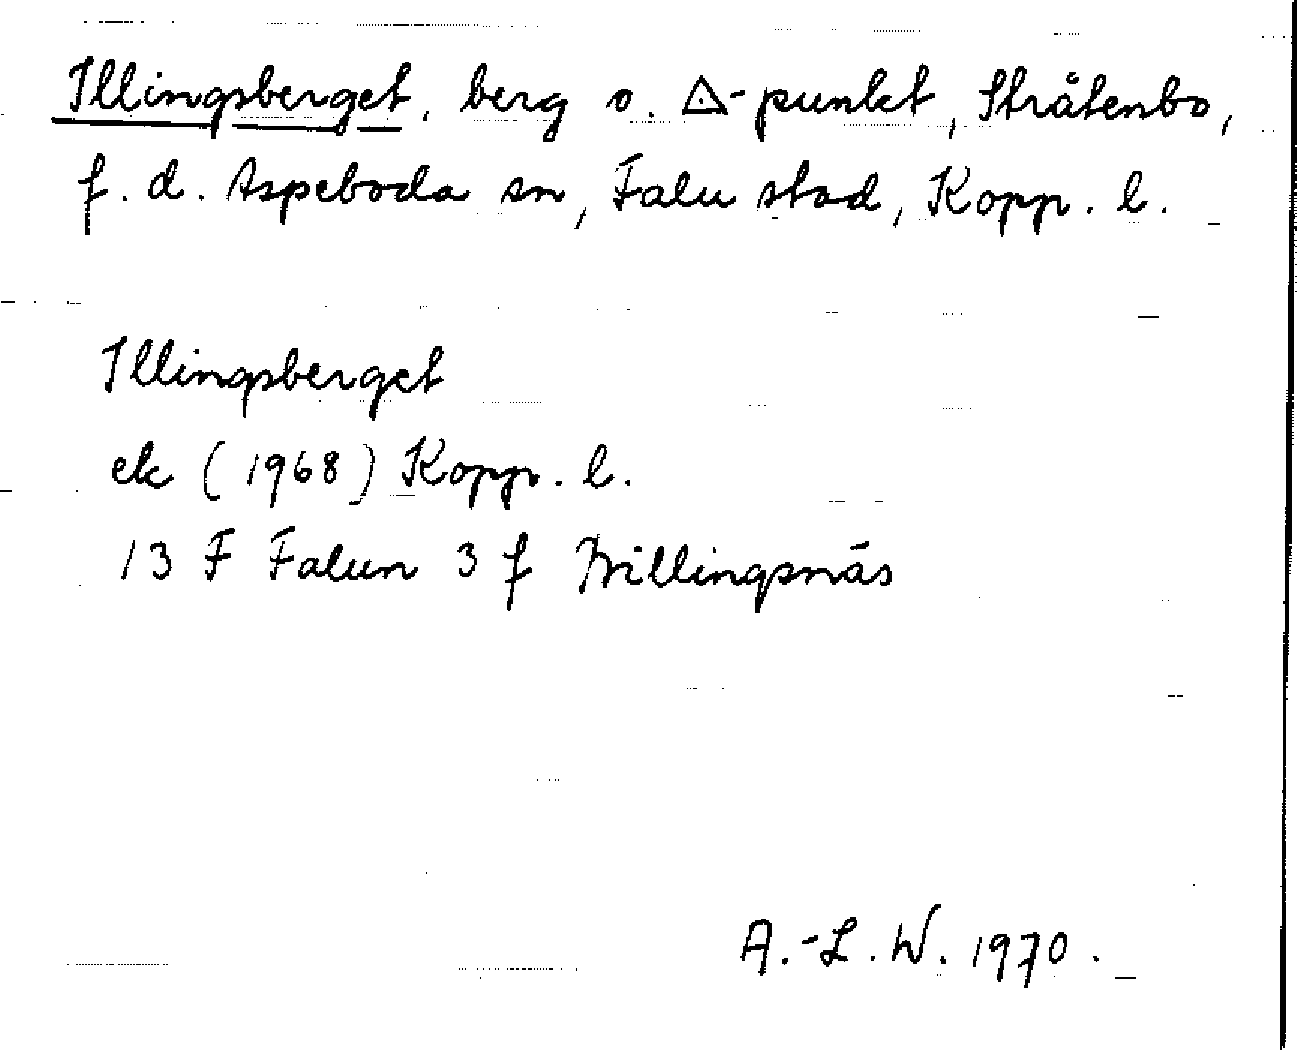 Illingsberget, berg o. △-punkt, Stråtenbo,
f. d. Aspeboda sn, Falu stad, Kopp. l.
Illingsberget
ek (1968) Kopp. l.
13 F Falun 3 f Krillingsnäs
A.-L. W. 1970.